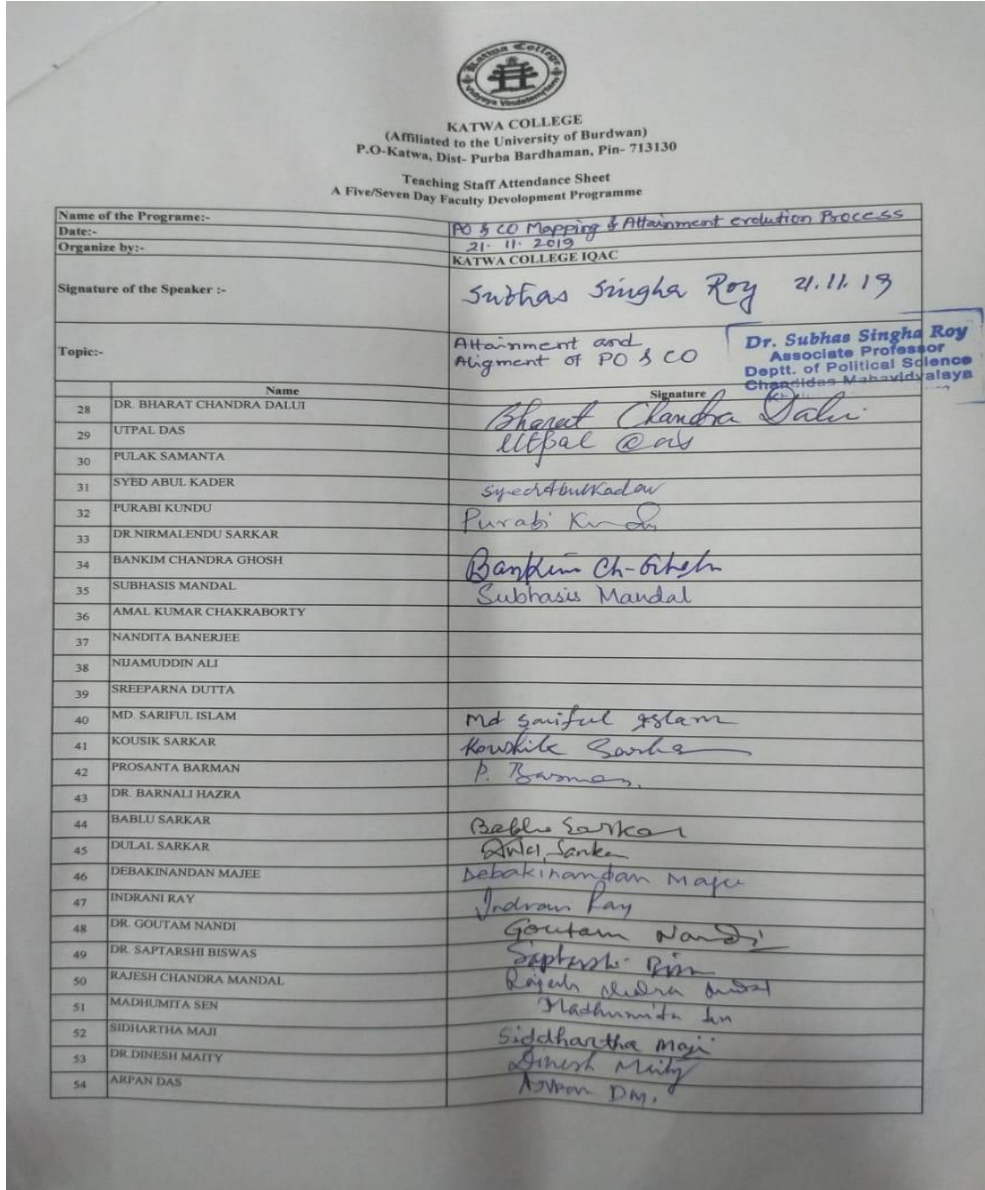 Katwa College
KATWA COLLEGE
(Affiliated to the University of Burdwan)
P.O-Katwa, Dist- Purba Bardhaman, Pin- 713130
Teaching Staff Attendance Sheet
A Five/Seven Day Faculty Devolopment Programme
Name of the Programe:- PO & CO Mapping & Attainment evolution Process
Date:- 21. 11. 2019
Organize by:- KATWA COLLEGE IQAC
Signature of the Speaker :- Subhas Singha Roy 21.11.19
Topic:- Attainment and
Aligment of PO & CO
Dr. Subhas Singha Roy
Associate Professor
Deptt. of Political Science
Chandidas Mahavidyalaya
Name Signature
28 DR. BHARAT CHANDRA DALUI Bharat Chandra Dalui
29 UTPAL DAS Utpal Das
30 PULAK SAMANTA
31 SYED ABUL KADER Syed Abul Kader
32 PURABI KUNDU Purabi Kundu
33 DR.NIRMALENDU SARKAR
34 BANKIM CHANDRA GHOSH Bankim Ch-Ghosh
35 SUBHASIS MANDAL Subhasis Mandal
36 AMAL KUMAR CHAKRABORTY
37 NANDITA BANERJEE
38 NIJAMUDDIN ALI
39 SREEPARNA DUTTA
40 MD. SARIFUL ISLAM Md Sariful Islam
41 KOUSIK SARKAR Koushik Sarkar
42 PROSANTA BARMAN P. Barman.
43 DR. BARNALI HAZRA
44 BABLU SARKAR Bablu Sarkar
45 DULAL SARKAR Dulal Sarkar
46 DEBAKINANDAN MAJEE Debakinandan Majee
47 INDRANI RAY Indrani Ray
48 DR. GOUTAM NANDI Goutam Nandi
49 DR. SAPTARSHI BISWAS Saptarshi
50 RAJESH CHANDRA MANDAL Rajesh Chandra Mandal
51 MADHUMITA SEN Madhumita Sen
52 SIDHARTHA MAJI Siddhartha Maji
53 DR.DINESH MAITY Dinesh Maity
54 ARPAN DAS Arpan Das.